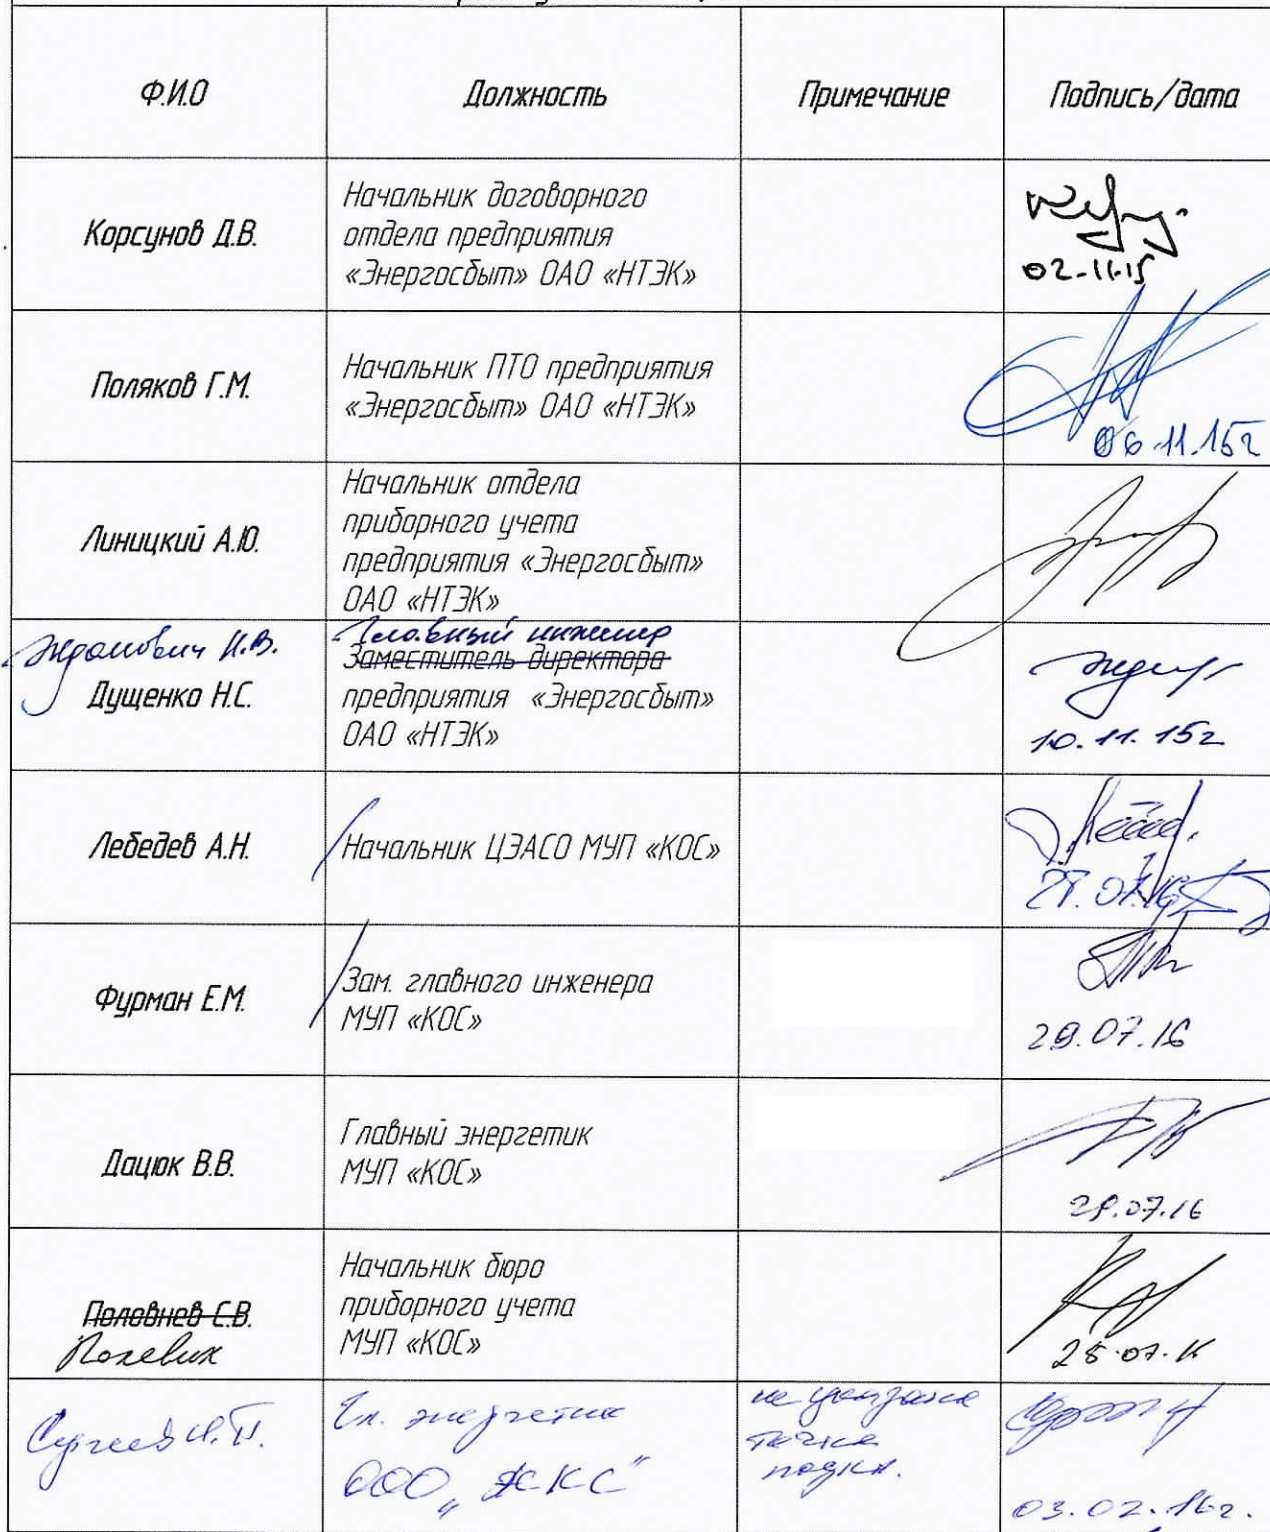 Ф.И.О
Должность
Примечание
Подпись/дата
Корсунов Д.В.
Начальник договорного
отдела предприятия
«Энергосбыт» ОАО «НТЭК»
02.11.15
Поляков Г.М.
Начальник ПТО предприятия
«Энергосбыт» ОАО «НТЭК»
06.11.15г
Линицкий А.Ю.
Начальник отдела
приборного учета
предприятия «Энергосбыт»
ОАО «НТЭК»
Жданович И.В.
Дущенко Н.С.
Главный инженер
Заместитель директора
предприятия «Энергосбыт»
ОАО «НТЭК»
10.11.15г
Лебедев А.Н.
Начальник ЦЭАСО МУП «КОС»
Фурман Е.М.
Зам. главного инженера
МУП «КОС»
29.07.16
Дацюк В.В.
Главный энергетик
МУП «КОС»
29.07.16
Половнев С.В.
Начальник бюро
приборного учета
МУП «КОС»
28.07.16
Сергеев И.П.
Гл. энергетик
ООО „ЖКС"
не указана
точка
подкл.
03.02.16г.